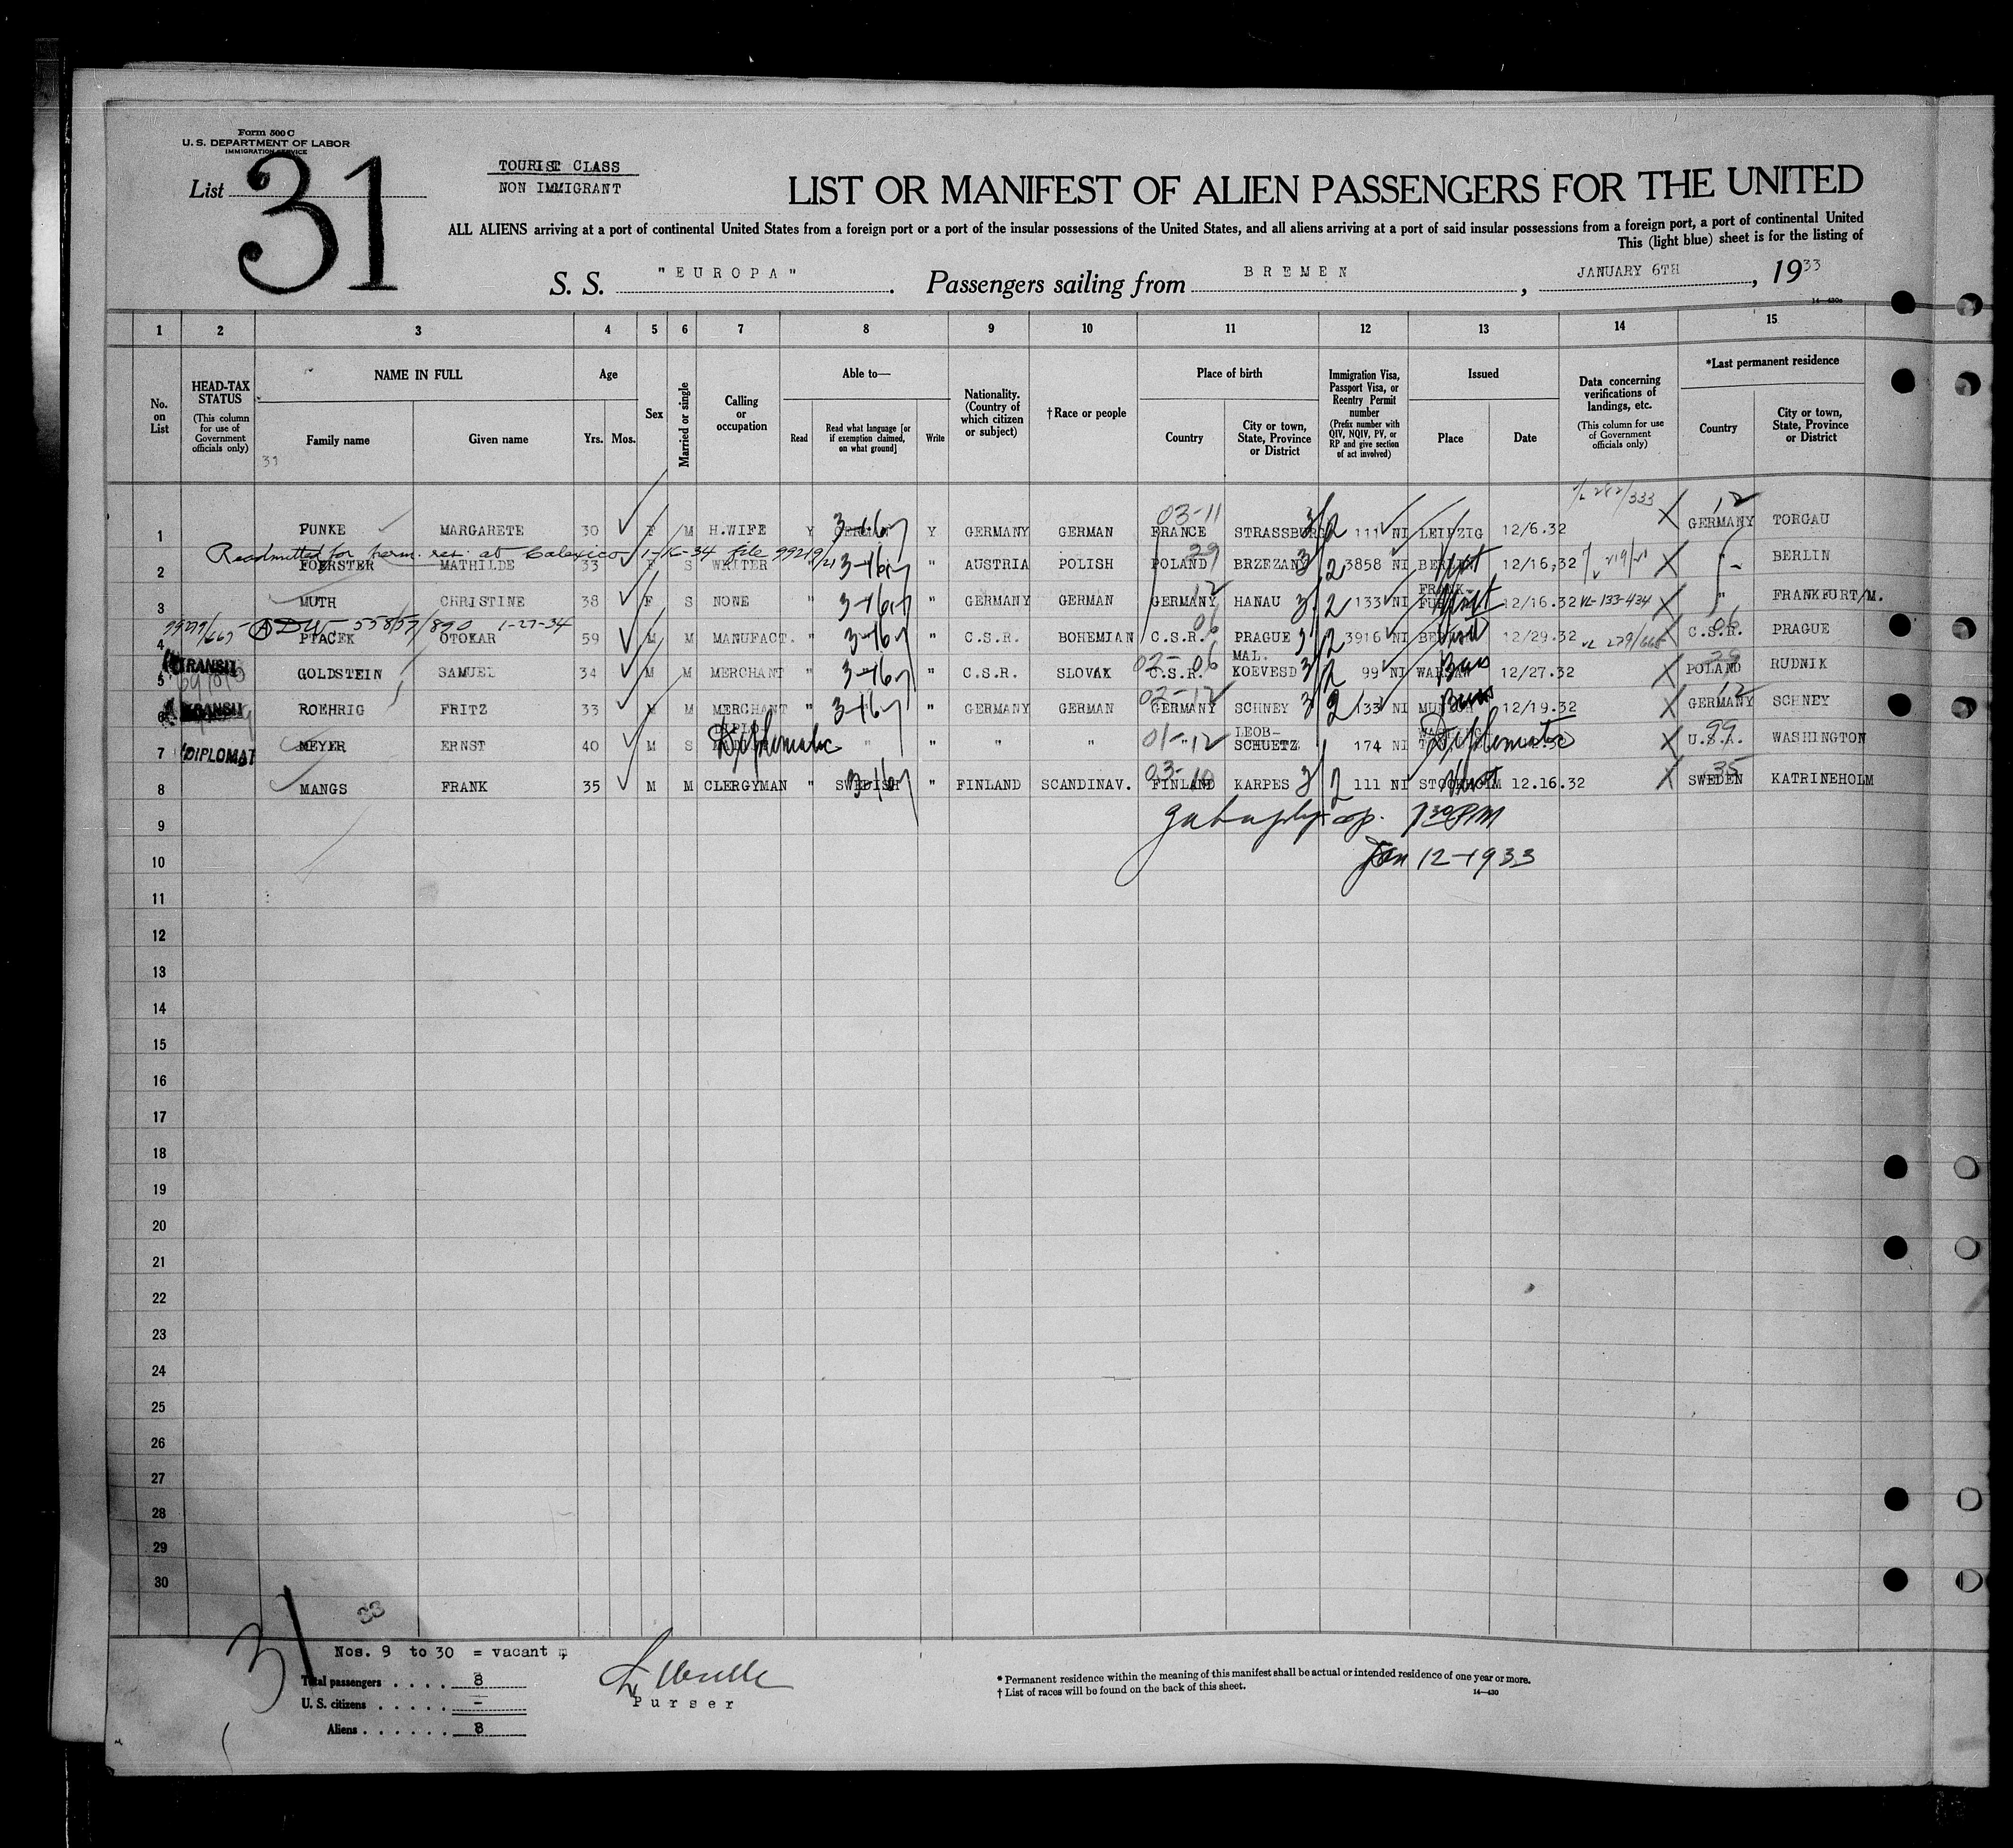 Form 500 C
U. S. DEPARTMENT OF LABOR
IMMIGRATION SERVICE
List 31
TOURIST CLASS
NON IMMIGRANT
LIST OR MANIFEST OF ALIEN PASSENGERS FOR THE UNITED
ALL ALIENS arriving at a port of continental United States from a foreign port or a port of the insular possessions of the United States, and all aliens arriving at a port of said insular possessions from a foreign port, a port of continental United
This (light blue) sheet is for the listing of
S. S. "EUROPA". Passengers sailing from BREMEN, JANUARY 6TH, 1933
14—430a
1 2 3 4 5 6 7 8 9 10 11 12 13 14 15
No. on List
HEAD-TAX STATUS (This column for use of Government officials only)
NAME IN FULL
Family name Given name
Age
Yrs. Mos.
Sex
Married or single
Calling or occupation
Able to—
Read
Read what language [or if exemption claimed, on what ground]
Write
Nationality. (Country of which citizen or subject)
†Race or people
Place of birth
Country
City or town, State, Province or District
Immigration Visa, Passport Visa, or Reentry Permit number (Prefix number with QIV, NQIV, PV, or RP and give section of act involved)
Issued
Place Date
Data concerning verifications of landings, etc. (This column for use of Government officials only)
*Last permanent residence
Country
City or town, State, Province or District
31
03-11 12
1 FUNKE MARGARETE 30 F M H.WIFE Y GERMAN Y GERMANY GERMAN FRANCE STRASSBURG 111 NI LEIPZIG 12/6.32 GERMANY TORGAU
Readmitted for perm. res. at Calexico 1-16-34 file 99219/21
2 FOERSTER MATHILDE 33 F S WRITER " " AUSTRIA POLISH POLAND BRZEZANY 3858 NI BERLIN 12/16.32 " BERLIN
3 MUTH CHRISTINE 38 F S NONE " " GERMANY GERMAN GERMANY HANAU 133 NI FRANKFURT 12/16.32 VL-133-434 " FRANKFURT/M.
1-27-34
4 PTACEK OTOKAR 59 M M MANUFACT. " " C.S.R. BOHEMIAN C.S.R. PRAGUE 3916 NI 12/29.32 C.S.R. PRAGUE
TRANSIT
5 GOLDSTEIN SAMUEL 34 M M MERCHANT " " C.S.R. SLOVAK 02-06 C.S.R. MAL. KOEVESD 99 NI WARSAW 12/27.32 POLAND RUDNIK
TRANSIT
6 ROEHRIG FRITZ 33 M M MERCHANT " " GERMANY GERMAN 02-12 GERMANY SCHNEY 133 NI 12/19.32 GERMANY SCHNEY
DIPLOMAT
7 MEYER ERNST 40 M S Diplomatic " " " " 01-12 " LEOB-SCHUETZ 174 NI Diplomatic 99 U.S.A. WASHINGTON
8 MANGS FRANK 35 M M CLERGYMAN " SWEDISH " FINLAND SCANDINAV. 03-10 FINLAND KARPES 111 NI STOCKHOLM 12.16.32 35 SWEDEN KATRINEHOLM
9
10 Jan 12-1933
11
12
13
14
15
16
17
18
19
20
21
22
23
24
25
26
27
28
29
30
31
33
Nos. 9 to 30 = vacant
Total passengers . . . . 8
U. S. citizens . . . . . —
Aliens . . . . . . 8
Purser
* Permanent residence within the meaning of this manifest shall be actual or intended residence of one year or more.
† List of races will be found on the back of this sheet.
14—430